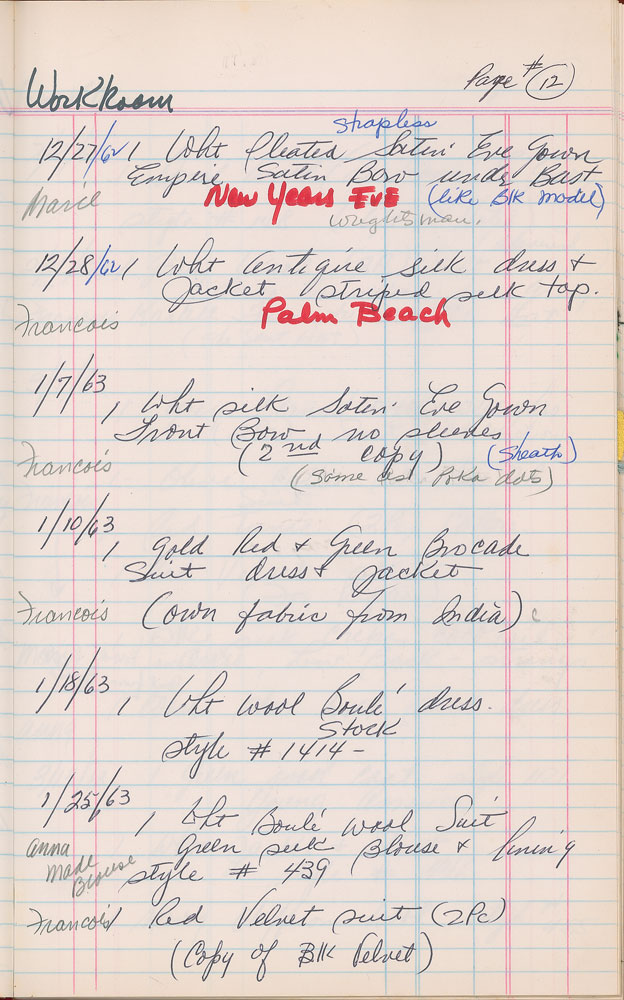 WorkRoom
Page # 12
strapless
12/27/62 1 Wht Pleated Satin Eve Gown
Empire Satin Bow under Bast
Marie New Years EVE (like Blk model)
wrightsman.
12/28/62 1 Wht antique silk dress +
Jacket striped silk top.
Francois Palm Beach
1/7/63
1 Wht silk Satin Eve Gown
Front Bow no sleeves
(2nd copy) (Sheath)
Francois (Same as Polka dots)
1/10/63
1 gold Red + Green Brocade
Suit dress + Jacket
Francois (own fabric from India)
1/18/63
1 Wht wool Boulé dress.
Stock
style # 1414 -
1/25/63
1 Wht Boulé wool Suit
anna Green silk Blouse + lining
Made
Blouse style # 439
Francois 1 Red Velvet suit (2Pc)
(Copy of Blk Velvet)